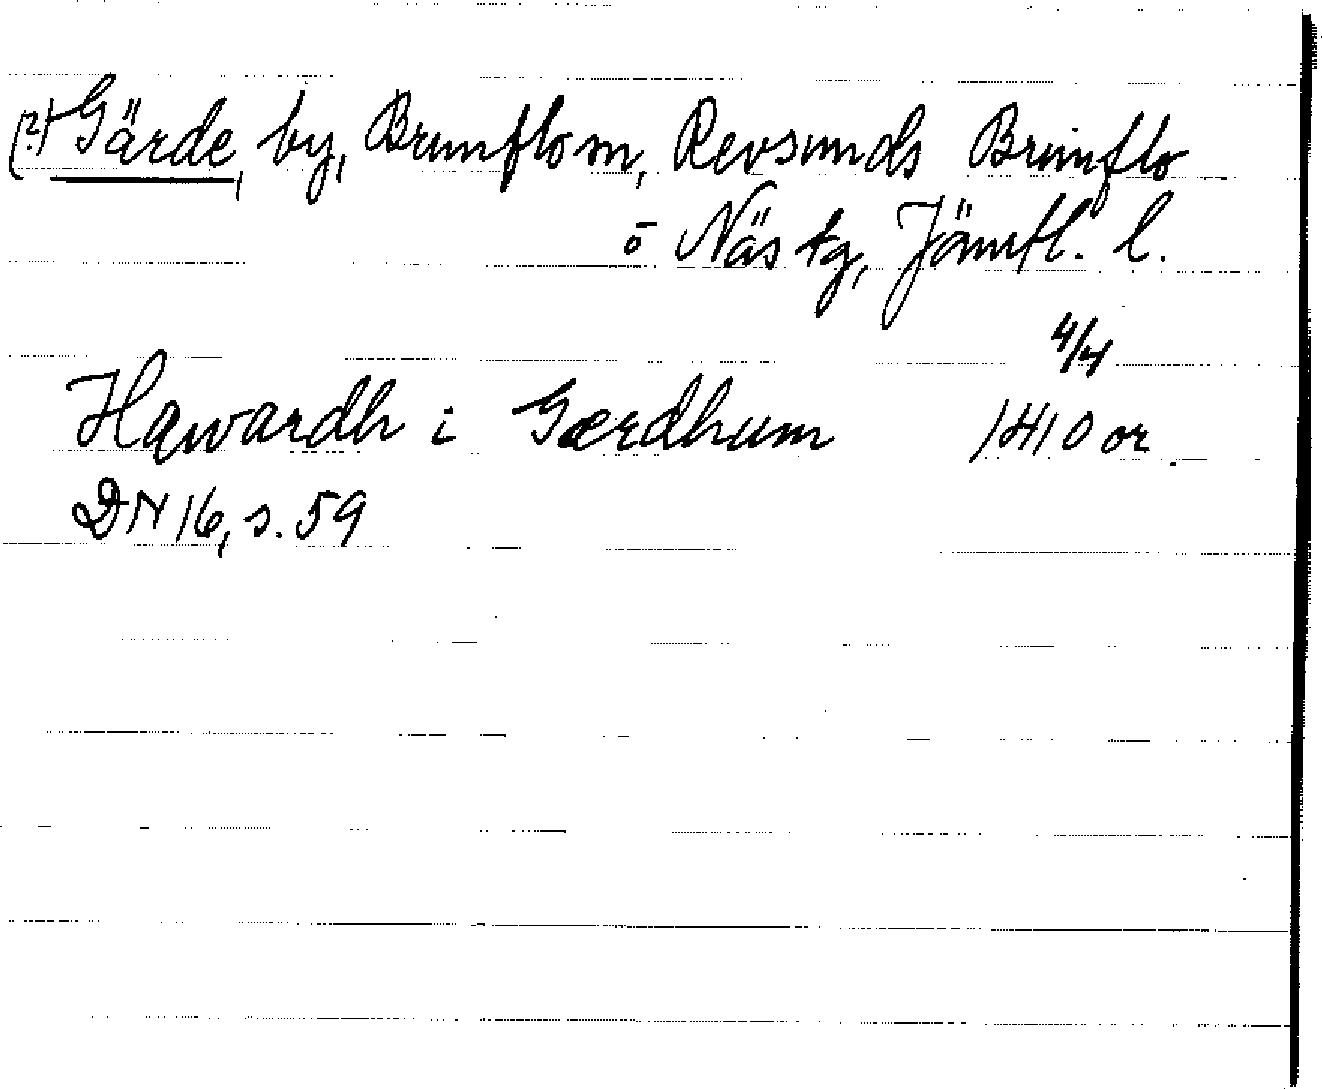 (?) Gärde, by, Brunflo sn, Revsunds Brunflo
o Näs tg, Jämtl. l.
4/4
Hawardh i Gærdhum 1410 or.
DN 16, s. 59